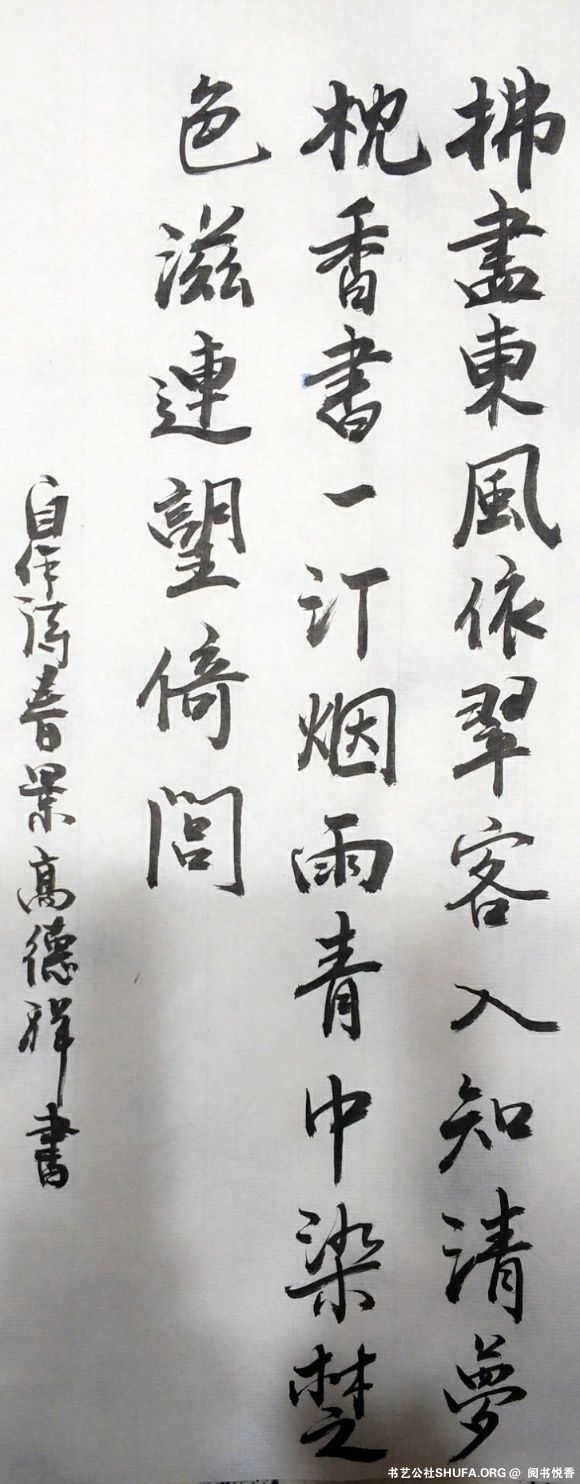 拂盡東風依翠客入知清夢
枕香書一汀烟雨青中染楚
色滋連望倚閭
自作詩春景高德祥書
书艺公社SHUFA.ORG @ 阅书悦香